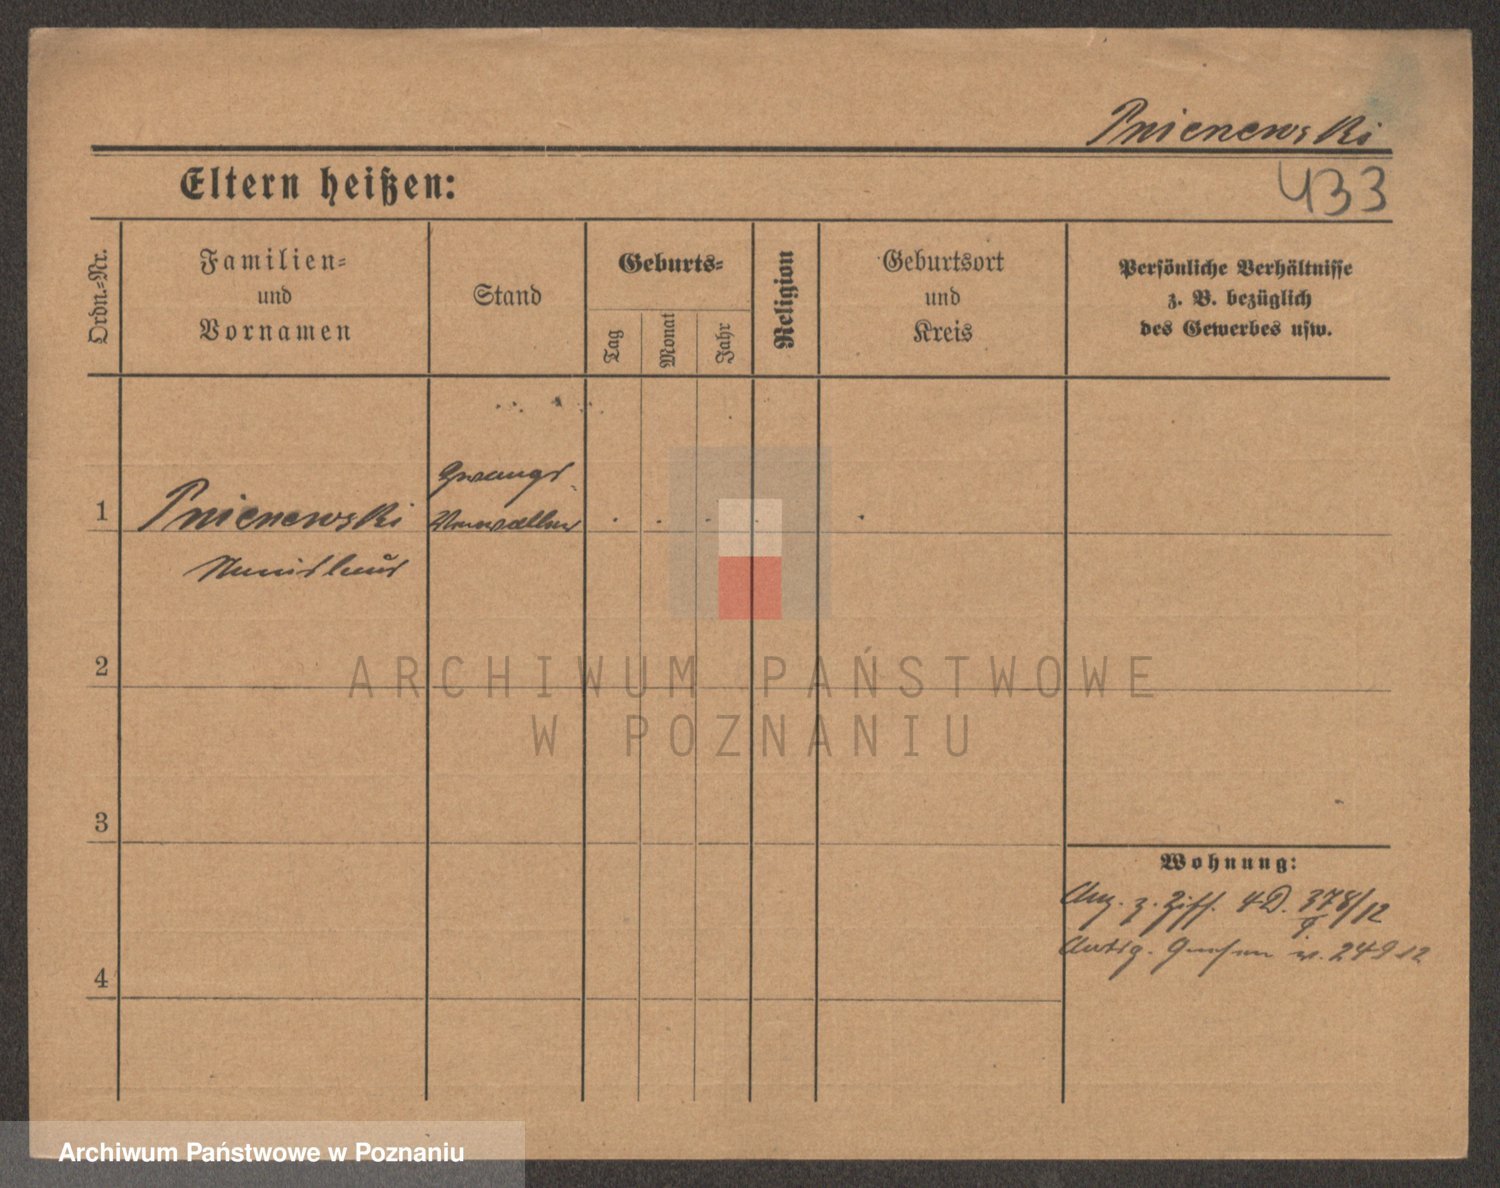 Pnienewski
433
Eltern heißen:
Ordn.-Nr.
Familien-
und
Vornamen
Stand
Geburts-
Tag
Monat
Jahr
Religion
Geburtsort
und
Kreis
Persönliche Verhältnisse
z. B. bezüglich
des Gewerbes usw.
1
Pnienewski
Zwangs-
Verwalter
2
3
4
Wohnung:
z. Ziff. 4 D. 378/12
Gnesen v. 24 9 12
ARCHIWUM PAŃSTWOWE
W POZNANIU
Archiwum Państwowe w Poznaniu